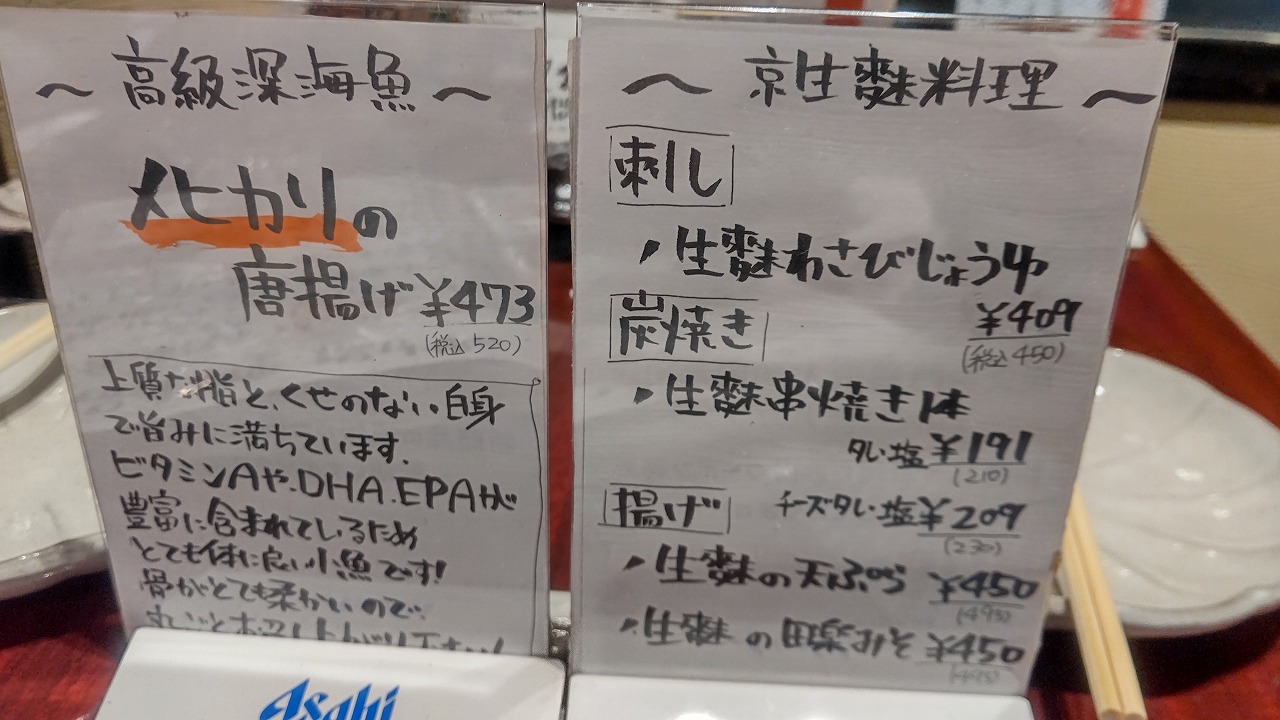 ～高級深海魚～
メヒカリの
唐揚げ ¥473
(税込520)
上質な脂と、くせのない白身
で旨みに満ちています.
ビタミンAや.DHA.EPAが
豊富に含まれているため
とても体に良い小魚です!
骨がとても柔かいので.
Asahi
～京生麩料理～
刺し
・生麩わさびじょうゆ
¥409
(税込450)
炭焼き
・生麩串焼き1本
タレ・塩 ¥191
(210)
チーズタレ・塩 ¥209
(230)
揚げ
・生麩の天ぷら ¥450
(495)
・生麩の田楽みそ ¥450
(495)